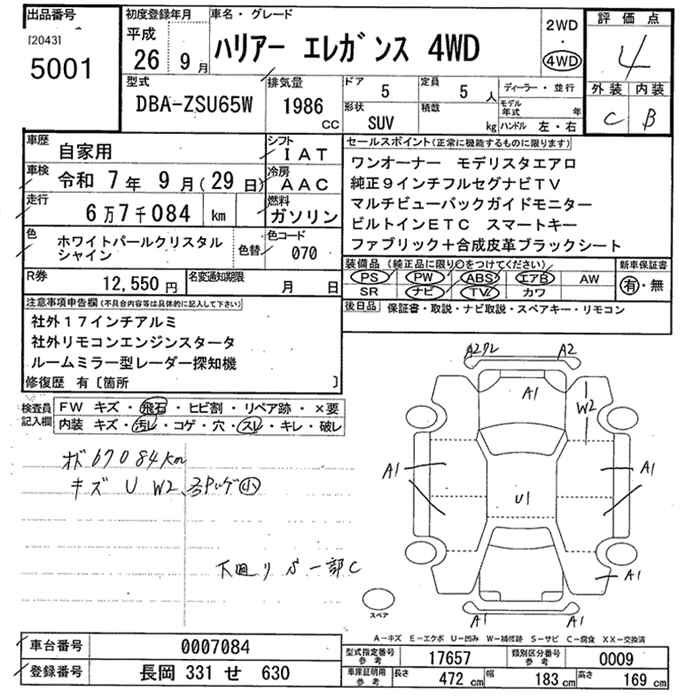 出品番号
[2043]
5001
初度登録年月
平成
26 9月
車名・グレード
ハリアー エレガンス 4WD
2WD
・
4WD
評価点
4
外装 内装
C B
型式
DBA-ZSU65W
排気量
1986
CC
ドア
5
定員
5 人
形状
SUV
積載
kg
ディーラー・並行
モデル年式 年
ハンドル 左・右
車歴
自家用
シフト
IAT
車検
令和 7年 9月(29日)
冷房
AAC
走行
6万7千084 km
燃料
ガソリン
色
ホワイトパールクリスタル
シャイン
色替
色コード
070
R券
12,550円
名変通知期限
月 日
セールスポイント(正常に機能するものに限ります)
ワンオーナー モデリスタエアロ
純正9インチフルセグナビTV
マルチビューバックガイドモニター
ビルトインETC スマートキー
ファブリック+合成皮革ブラックシート
装備品(純正品に限り○をつけてください)
PS PW ABS エアB AW
SR ナビ TV カワ
新車保証書
有・無
後日品 保証書・取説・ナビ取説・スペアキー・リモコン
注意事項申告欄(不具合内容等は具体的に記入して下さい)
社外17インチアルミ
社外リモコンエンジンスタータ
ルームミラー型レーダー探知機
修復歴 有[箇所 ]
検査員
記入欄
FW キズ・飛石・ヒビ割・リペア跡・×要
内装 キズ・汚レ・コゲ・穴・スレ・キレ・破レ
67084km
キズ U W2
下廻り S 一部C
A2 A2
A1
W2
A1 A1
U1
A1
A1 A1
スペア
A-キズ E-エクボ U-凹み W-補修跡 S-サビ C-腐食 XX-交換済
車台番号 0007084
登録番号 長岡 331 せ 630
型式指定番号
参考
17657
類別区分番号
参考
0009
車庫証明用
参考
長さ 472 cm 幅 183 cm 高さ 169 cm